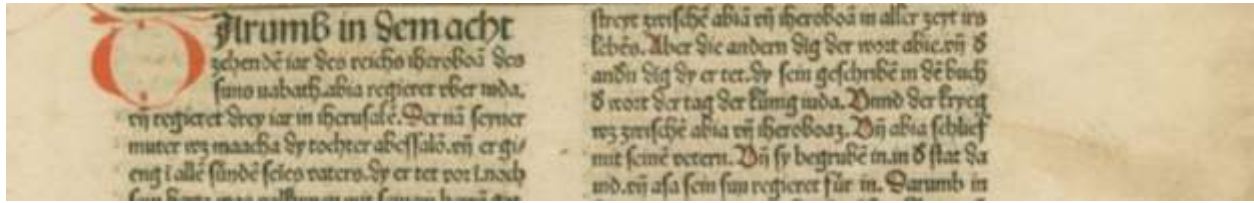 Darumb in dem acht
zehendē iar des reichs iheroboā des
suns nabath. abia regieret vber iuda.
vn̄ regieret drey iar in iherusalē. Der nā seyner
muter wz maacha dy tochter abessalō. vn̄ er gi/
eng ī allē sündē seīes vaters. dy er tet vor ī. noch
streyt zwischē abiā vn̄ iheroboā in aller zeyt irs
lebēs. Aber die andern dīg der wort abie. vn̄ d̄
andn̄ dīg dy er tet. dy sein geschribē in dē buch
d̄ wort der tag der künig iuda. Vnnd der kryeg
wz zwischē abia vn̄ iheroboaz. Vn̄ abia schlief
mit seinē vetern. Vn̄ sy begrubē in. in d̄ stat da
uid. vn̄ asa sein sun regieret für in. Darumb in